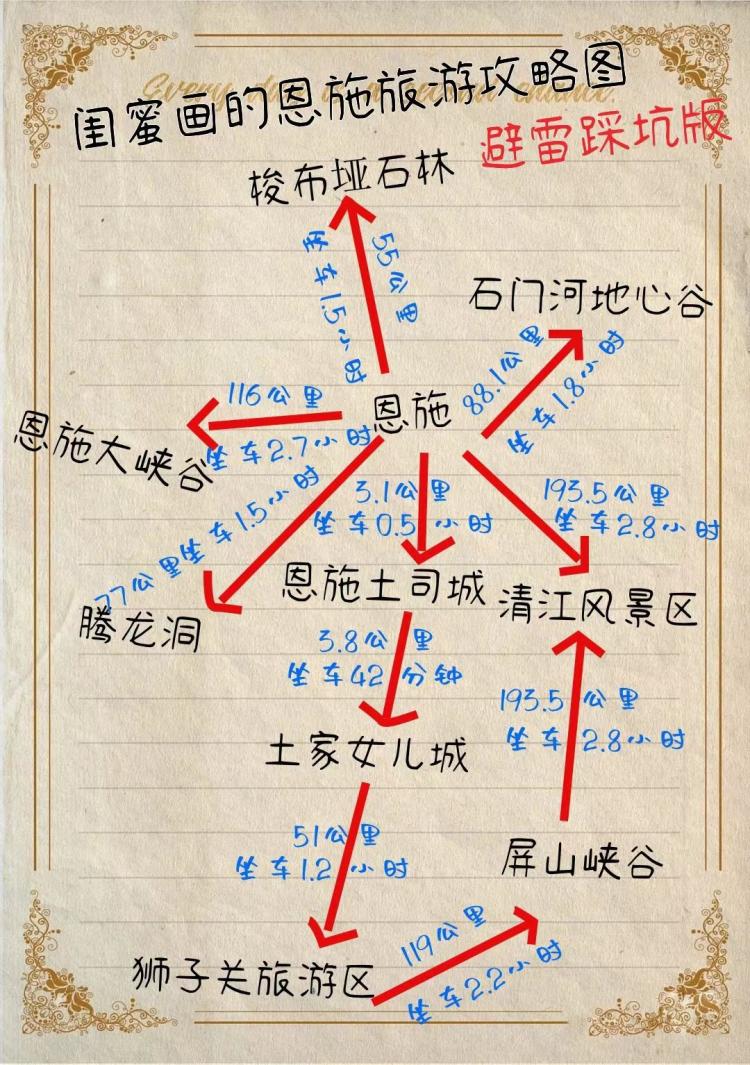 闺蜜画的恩施旅游攻略图
避雷踩坑版
梭布垭石林
55公里
坐车1.5小时
石门河地心谷
88.1公里
坐车1.8小时
116公里
恩施
恩施大峡谷
坐车2.7小时
77公里坐车1.5小时
3.1公里
坐车0.5小时
193.5公里
坐车2.8小时
恩施土司城
清江风景区
腾龙洞
3.8公里
坐车42分钟
193.5公里
坐车2.8小时
土家女儿城
51公里
坐车1.2小时
屏山峡谷
狮子关旅游区
119公里
坐车2.2小时